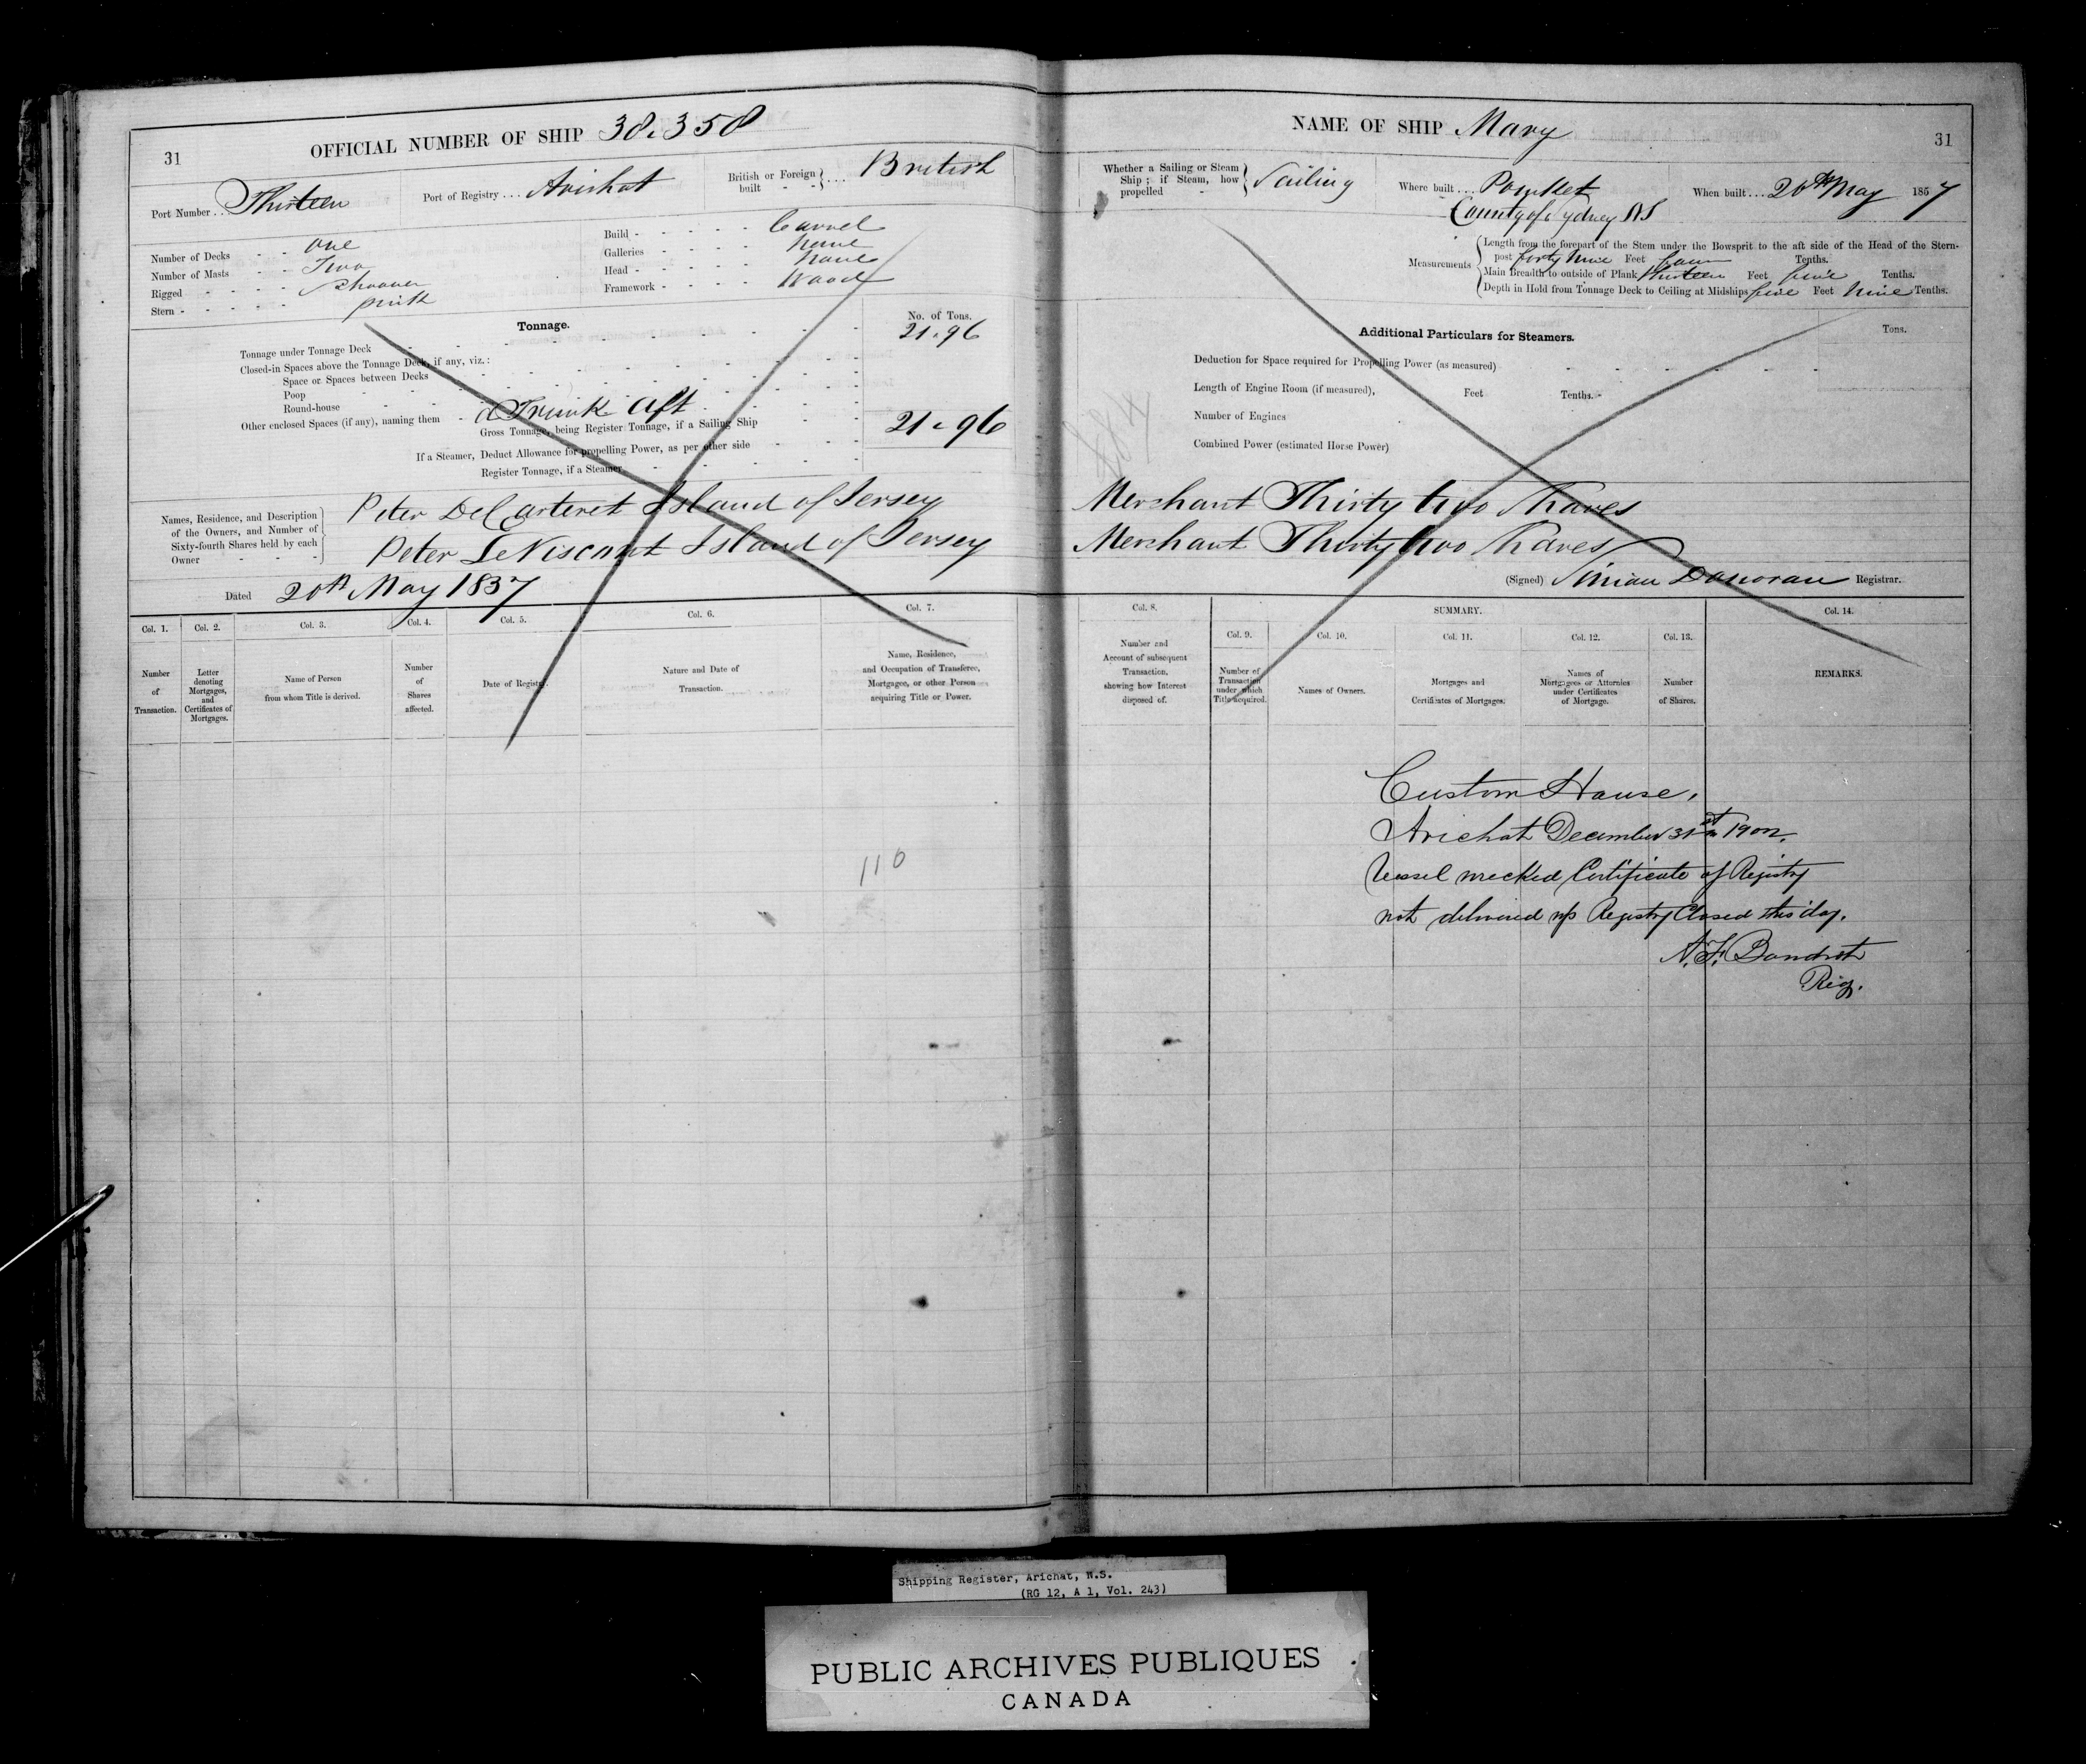 31
OFFICIAL NUMBER OF SHIP 38.358
Port Number . . . Thirteen
Port of Registry . . . Arichat
British or Foreign built - - } . . . British
Number of Decks - - one
Number of Masts - - Two
Rigged - - - - Schooner
Stern - - - - pink
Build - - - - - Carvel
Galleries - - - - None
Head - - - - - None
Framework - - - - Wood
Tonnage.
No. of Tons.
Tonnage under Tonnage Deck 21.96
Closed-in Spaces above the Tonnage Deck, if any, viz.:
Space or Spaces between Decks
Poop
Round-house
Other enclosed Spaces (if any), naming them - a Trunk aft
Gross Tonnage, being Register Tonnage, if a Sailing Ship 21.96
If a Steamer, Deduct Allowance for propelling Power, as per other side
Register Tonnage, if a Steamer
Names, Residence, and Description of the Owners, and Number of Sixty-fourth Shares held by each Owner
Peter DeCarteret Island of Jersey
Peter LeViscount Island of Jersey
Dated 20th May 1857
Col. 1. Number of Transaction.
Col. 2. Letter denoting Mortgages, and Certificates of Mortgages.
Col. 3. Name of Person from whom Title is derived.
Col. 4. Number of Shares affected.
Col. 5. Date of Registry.
Col. 6. Nature and Date of Transaction.
Col. 7. Name, Residence, and Occupation of Transferee, Mortgagee, or other Person acquiring Title or Power.
110
NAME OF SHIP Mary
31
Whether a Sailing or Steam Ship; if Steam, how propelled - } Sailing
Where built . . . Pomket
County of Sydney NS
When built . . . 20th May 1857
Measurements
Length from the forepart of the Stem under the Bowsprit to the aft side of the Head of the Stern-
post forty nine Feet four Tenths.
Main Breadth to outside of Plank thirteen Feet five Tenths.
Depth in Hold from Tonnage Deck to Ceiling at Midships five Feet nine Tenths.
Additional Particulars for Steamers.
Tons.
Deduction for Space required for Propelling Power (as measured)
Length of Engine Room (if measured), Feet Tenths.
Number of Engines
Combined Power (estimated Horse Power)
Merchant Thirty two Shares
Merchant Thirty two Shares
(Signed) Donovan Registrar.
Col. 8. Number and Account of subsequent Transaction, showing how Interest disposed of.
SUMMARY.
Col. 9. Number of Transaction under which Title acquired.
Col. 10. Names of Owners.
Col. 11. Mortgages and Certificates of Mortgages.
Col. 12. Names of Mortgagees or Attornies under Certificates of Mortgage.
Col. 13. Number of Shares.
Col. 14. REMARKS.
Custom House,
Arichat December 31st
Vessel wrecked Certificate of Registry
not delivered up Registry Closed this day.
Reg.
Shipping Register, Arichat, N.S.
(RG 12, A 1, Vol. 243)
PUBLIC ARCHIVES PUBLIQUES
CANADA